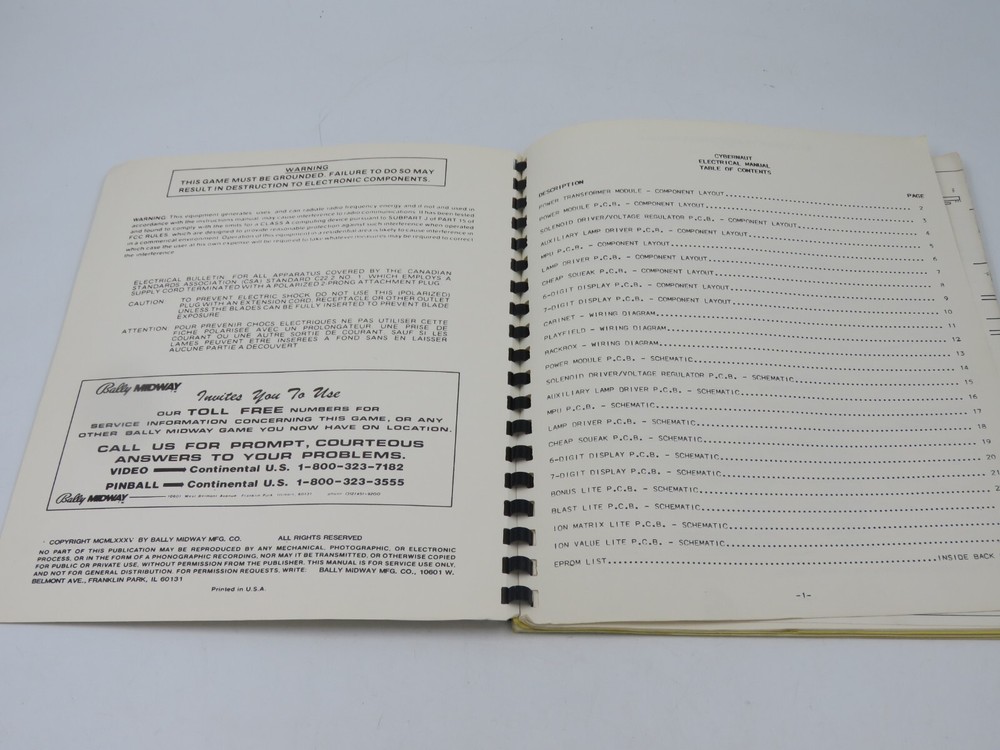 WARNING
THIS GAME MUST BE GROUNDED. FAILURE TO DO SO MAY
RESULT IN DESTRUCTION TO ELECTRONIC COMPONENTS.
WARNING: This equipment generates, uses, and can radiate radio frequency energy, and if not used in
accordance with the instructions manual, may cause interference to radio communications. It has been tested
and found to comply with the limits for a CLASS A computing device pursuant to SUBPART J of PART 15 of
FCC RULES, which are designed to provide reasonable protection against such interference when operated
in a commercial environment. Operation of this equipment in a residential area is likely to cause interference in
which case the user at his own expense will be required to take whatever measures may be required to correct
the interference.
ELECTRICAL BULLETIN: FOR ALL APPARATUS COVERED BY THE CANADIAN
STANDARDS ASSOCIATION (CSA) STANDARD C22.2 NO. 1, WHICH EMPLOYS A
SUPPLY CORD TERMINATED WITH A POLARIZED 2-PRONG ATTACHMENT PLUG.
CAUTION: TO PREVENT ELECTRIC SHOCK DO NOT USE THIS (POLARIZED)
PLUG WITH AN EXTENSION CORD, RECEPTACLE OR OTHER OUTLET
UNLESS THE BLADES CAN BE FULLY INSERTED TO PREVENT BLADE
EXPOSURE.
ATTENTION: POUR PREVENIR CHOCS ELECTRIQUES NE PAS UTILISER CETTE
FICHE POLARISEE AVEC UN PROLONGATEUR, UNE PRISE DE
COURANT OU UNE AUTRE SORTIE DE COURANT, SAUF SI LES
LAMES PEUVENT ETRE INSEREES A FOND SANS EN LAISSER
AUCUNE PARTIE A DECOUVERT.
Bally MIDWAY Invites You To Use
OUR TOLL FREE NUMBERS FOR
SERVICE INFORMATION CONCERNING THIS GAME, OR ANY
OTHER BALLY MIDWAY GAME YOU NOW HAVE ON LOCATION.
CALL US FOR PROMPT, COURTEOUS
ANSWERS TO YOUR PROBLEMS.
VIDEO Continental U.S. 1-800-323-7182
PINBALL Continental U.S. 1-800-323-3555
Bally MIDWAY
COPYRIGHT MCMLXXXV BY BALLY MIDWAY MFG. CO. ALL RIGHTS RESERVED
NO PART OF THIS PUBLICATION MAY BE REPRODUCED BY ANY MECHANICAL, PHOTOGRAPHIC, OR ELECTRONIC
PROCESS, OR IN THE FORM OF A PHONOGRAPHIC RECORDING, NOR MAY IT BE TRANSMITTED, OR OTHERWISE COPIED
FOR PUBLIC OR PRIVATE USE, WITHOUT PERMISSION FROM THE PUBLISHER. THIS MANUAL IS FOR SERVICE USE ONLY,
AND NOT FOR GENERAL DISTRIBUTION. FOR PERMISSION REQUESTS, WRITE: BALLY MIDWAY MFG. CO., 10601 W.
BELMONT AVE., FRANKLIN PARK, IL 60131
Printed in U.S.A.
CYBERNAUT
ELECTRICAL MANUAL
TABLE OF CONTENTS
DESCRIPTION PAGE
POWER TRANSFORMER MODULE - COMPONENT LAYOUT 2
POWER MODULE P.C.B. - COMPONENT LAYOUT 3
SOLENOID DRIVER/VOLTAGE REGULATOR P.C.B. - COMPONENT LAYOUT 4
AUXILIARY LAMP DRIVER P.C.B. - COMPONENT LAYOUT 5
MPU P.C.B. - COMPONENT LAYOUT 6
LAMP DRIVER P.C.B. - COMPONENT LAYOUT 7
CHEAP SQUEAK P.C.B. - COMPONENT LAYOUT 8
6-DIGIT DISPLAY P.C.B. - COMPONENT LAYOUT 9
7-DIGIT DISPLAY P.C.B. - COMPONENT LAYOUT 10
CABINET - WIRING DIAGRAM 11
PLAYFIELD - WIRING DIAGRAM 12
BACKBOX - WIRING DIAGRAM 13
POWER MODULE P.C.B. - SCHEMATIC 14
SOLENOID DRIVER/VOLTAGE REGULATOR P.C.B. - SCHEMATIC 15
AUXILIARY LAMP DRIVER P.C.B. - SCHEMATIC 16
MPU P.C.B. - SCHEMATIC 17
LAMP DRIVER P.C.B. - SCHEMATIC 18
CHEAP SQUEAK P.C.B. - SCHEMATIC 19
6-DIGIT DISPLAY P.C.B. - SCHEMATIC 20
7-DIGIT DISPLAY P.C.B. - SCHEMATIC 21
BONUS LITE P.C.B. - SCHEMATIC 2
BLAST LITE P.C.B. - SCHEMATIC
ION MATRIX LITE P.C.B. - SCHEMATIC
ION VALUE LITE P.C.B. - SCHEMATIC
EPROM LIST INSIDE BACK
-1-